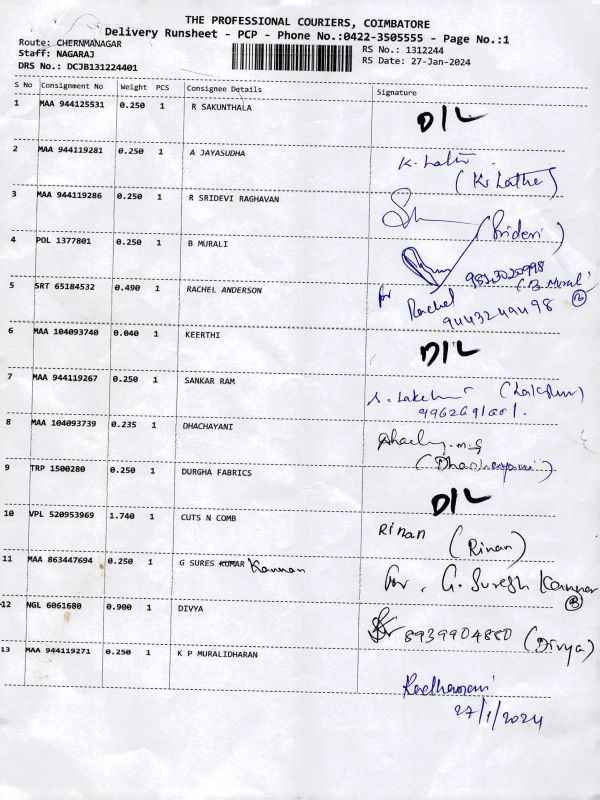 THE PROFESSIONAL COURIERS, COIMBATORE
Delivery Runsheet - PCP - Phone No.:0422-3505555 - Page No.:1
Route: CHERNMANAGAR
Staff: NAGARAJ
DRS No.: DCJB131224401
RS No.: 1312244
RS Date: 27-Jan-2024
S No Consignment No Weight PCS Consignee Details Signature
1 MAA 944125531 0.250 1 R SAKUNTHALA D/L
2 MAA 944119281 0.250 1 A JAYASUDHA K. Latha
(K. Lathe)
3 MAA 944119286 0.250 1 R SRIDEVI RAGHAVAN
(Sridevi)
4 POL 1377801 0.250 1 B MURALI
(B. Murali)
5 SRT 65184532 0.490 1 RACHEL ANDERSON for Rachel
9443249498
6 MAA 104093740 0.040 1 KEERTHI D/L
7 MAA 944119267 0.250 1 SANKAR RAM
9962691601.
8 MAA 104093739 0.235 1 DHACHAYANI
9 TRP 1500280 0.250 1 DURGHA FABRICS D/L
10 VPL 520953969 1.740 1 CUTS N COMB Rinan (Rinan)
11 MAA 863447694 0.250 1 G SURES KUMAR Kannan For. G. Suresh Kannan
12 NGL 6061680 0.900 1 DIVYA 8939904880 (Divya)
13 MAA 944119271 0.250 1 K P MURALIDHARAN
27/1/2024